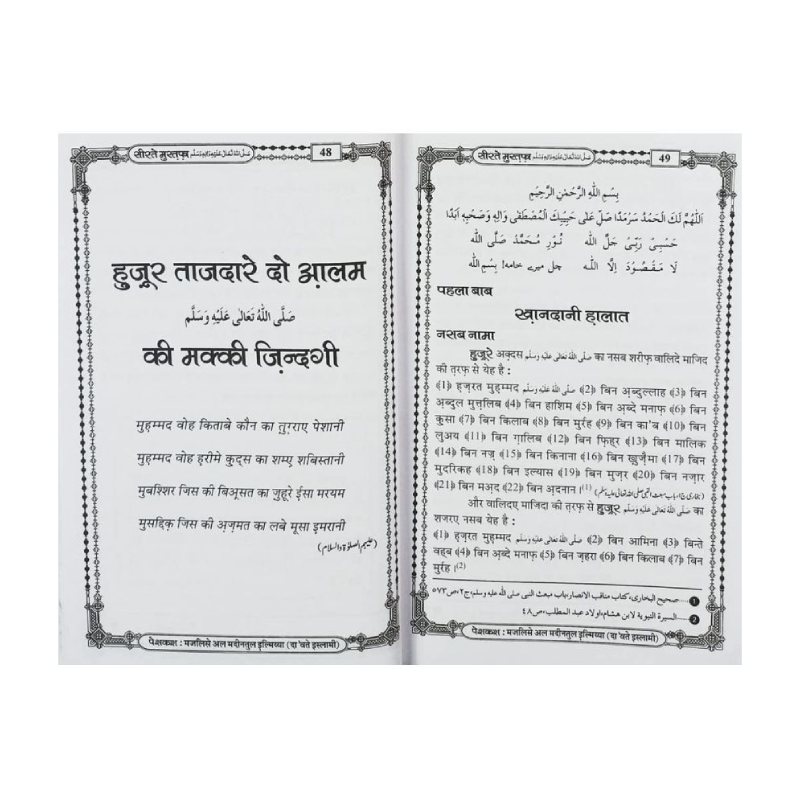 सीरते मुस्तफ़ा صَلَّى اللهُ تَعَالٰى عَلَيْهِ وَاٰلِهٖ وَسَلَّم
48
हुज़ूर ताजदारे दो आ़लम
صَلَّى اللّٰهُ تَعَالٰى عَلَيْهِ وَسَلَّم
की मक्की ज़िन्दगी
मुह़म्मद वोह किताबे कौन का तु़ग़राए पेशानी
मुह़म्मद वोह ह़रीमे क़ुद्स का शम्ए़ शबिस्तानी
मुबश्शिर जिस की बिअ़्सत का ज़ुहूरे ईसा मरयम
मुसद्दिक़ जिस की अ़ज़मत का लबे मूसा इमरानी
(علیہم الصلاۃ والسلام)
पेशकश : मजलिसे अल मदीनतुल इ़ल्मिय्या (दा'वते इस्लामी)
सीरते मुस्तफ़ा صَلَّى اللهُ تَعَالٰى عَلَيْهِ وَاٰلِهٖ وَسَلَّم
49
بِسْمِ اللّٰهِ الرَّحْمٰنِ الرَّحِيْمِ
اَللّٰهُمَّ لَكَ الْحَمْدُ سَرْمَدًا صَلِّ عَلٰى حَبِيْبِكَ الْمُصْطَفٰى وَاٰلِهٖ وَصَحْبِهٖ اَبَدًا
حَسْبِىْ رَبِّىْ جَلَّ اللّٰه نُوْرِ مُحَمَّدْ صَلَّى اللّٰه
لَا مَقْصُوْدَ اِلَّا اللّٰه چل میرے خامہ! بِسْمِ اللّٰه
पहला बाब
ख़ानदानी ह़ालात
नसब नामा
हुज़ूरे अक़्दस صلى الله تعالى عليه وسلم का नसब शरीफ़ वालिदे माजिद
की त़रफ़ से येह है :
﴾1﴿ ह़ज़रत मुह़म्मद صلى الله تعالى عليه وسلم ﴾2﴿ बिन अ़ब्दुल्लाह ﴾3﴿ बिन
अ़ब्दुल मुत्त़लिब ﴾4﴿ बिन हाशिम ﴾5﴿ बिन अ़ब्दे मनाफ़ ﴾6﴿ बिन
कुसा ﴾7﴿ बिन किलाब ﴾8﴿ बिन मुर्रह ﴾9﴿ बिन का'ब ﴾10﴿ बिन
लुअय ﴾11﴿ बिन ग़ालिब ﴾12﴿ बिन फ़िह्‌र ﴾13﴿ बिन मालिक
﴾14﴿ बिन नज़्र ﴾15﴿ बिन किनाना ﴾16﴿ बिन ख़ुज़ैमा ﴾17﴿ बिन
मुदरिकह ﴾18﴿ बिन इल्यास ﴾19﴿ बिन मुज़र ﴾20﴿ बिन नज़ार
﴾21﴿ बिन मअ़द ﴾22﴿ बिन अ़दनान।(1)
और वालिदए माजिदा की त़रफ़ से हुज़ूर صلى الله تعالى عليه وسلم का
शजरए नसब येह है :
﴾1﴿ ह़ज़रत मुह़म्मद صلى الله تعالى عليه وسلم ﴾2﴿ बिन आमिना ﴾3﴿ बिन्ते
वह्ब ﴾4﴿ बिन अ़ब्दे मनाफ़ ﴾5﴿ बिन ज़हरा ﴾6﴿ बिन किलाब ﴾7﴿ बिन
मुर्रह।(2)
1 ......صحيح البخاری، كتاب مناقب الانصار، باب مبعث النبی صلى الله عليه وسلم، ج٢، ص٥٧٣
2 ......السيرة النبوية لابن هشام، اولاد عبد المطلب، ص٤٨
पेशकश : मजलिसे अल मदीनतुल इ़ल्मिय्या (दा'वते इस्लामी)